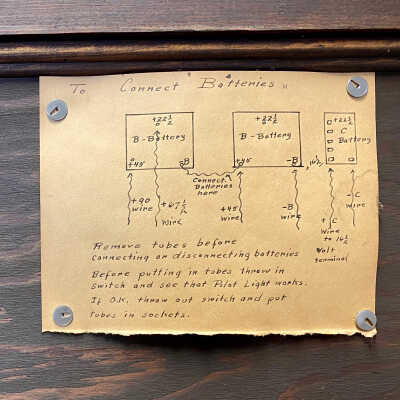 To Connect "Batteries"
+22½
B-Battery
+45
-B
+22½
B-Battery
+45
-B
+22½
C
Battery
16½
Connect
Batteries
here
+90
wire
+67½
wire
+45
wire
-B
wire
+C
wire
to 16½
Volt
terminal
-C
wire
Remove tubes before
connecting or disconnecting batteries
Before putting in tubes throw in
switch and see that Pilot Light works.
If O.K. throw out switch and put
tubes in sockets.